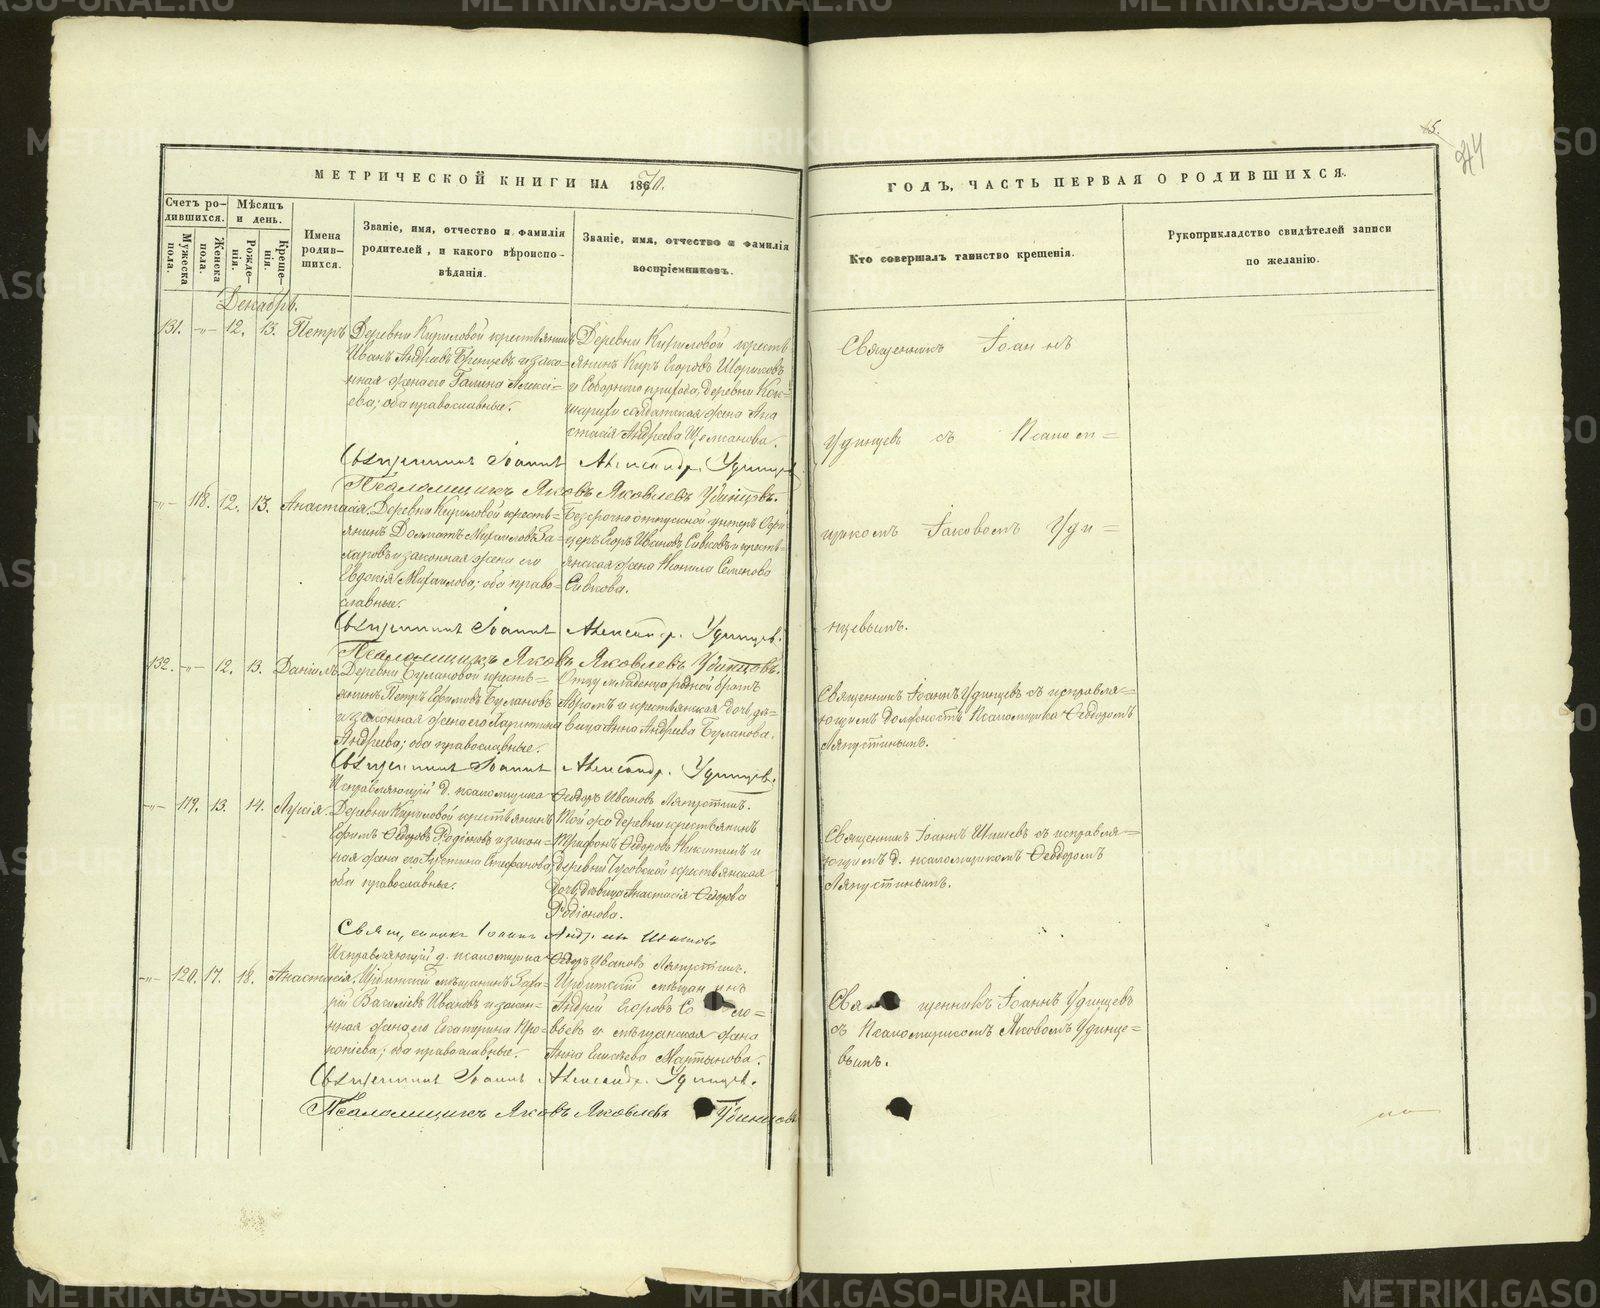 5.
44
МЕТРИЧЕСКОЙ КНИГИ НА 1870.
ГОДЪ, ЧАСТЬ ПЕРВАЯ О РОДИВШИХСЯ.
Счетъ ро-
дившихся.
Мужеска
пола.
Женска
пола.
Мѣсяцъ
и день.
Рожде-
нія.
Креще-
нія.
Имена
родив-
шихся.
Званіе, имя, отчество и фамилія
родителей, и какого вѣроиспо-
вѣданія.
Званіе, имя, отчество и фамилія
воспріемниковъ.
Кто совершалъ таинство крещенія.
Рукоприкладство свидѣтелей записи
по желанію.
Декабрь.
131. -"- 12. 13. Петръ
Деревни Кириловой крестьянинъ
Иванъ Андреевъ и зако-
нная жена его Галина Алексі-
ева; оба православные.
Деревни Кириловой кресть
янинъ Киръ Егоровъ
и Соборнаго прихода, деревни Кок-
шарихи солдатская жена Ана
стасія Андреева
Священникъ Іоаннъ
Удинцевъ съ Псалом=
щикомъ Іаковомъ Уди=
нцевымъ.
Священникъ Іоаннъ Александр. Удинцев
Псаломщикъ Яковъ Яковлевъ Удинцовъ.
-"- 118. 12. 13. Анастасія.
Деревни Кириловой кресть-
янинъ Долматъ Михаиловъ За-
харовъ и законная жена его
Евдокія Михаилова; оба право-
славные.
Безсрочноотпускной унтеръ Офи
церъ Егоръ Ивановъ Сивковъ и кресть-
янская жена Неонила Семенова
Сивкова.
Священникъ Іоаннъ Александр. Удинцев.
Псаломщикъ Яковъ Яковлевъ Удинцовъ.
132. -"- 12. 13. Даніилъ.
Деревни Булановой кресть=
янинъ Петръ Ефимовъ Булановъ
и законная жена его Харитина
Андреева; оба православные.
Отцу младенца родной братъ
Абрамъ и крестьянская дочь дѣ-
вица Анна Андреева Буланова.
Священникъ Іоаннъ Удинцевъ съ исправля=
ющимъ должность Псаломщика Ѳеодоромъ
Ляпустинымъ.
Священникъ Іоаннъ Александр. Удинцев.
Исправляющій д. псаломщика Ѳеодоръ Ивановъ Ляпустинъ.
-"- 119. 13. 14. Лукія.
Деревни Кириловой крестьянинъ
Ефимъ Ѳедоровъ Родіоновъ и закон-
ная жена его Стефанова
оба православные.
Той же деревни крестьянинъ
Трифонъ Ѳедоровъ Никитинъ и
деревни крестьянская
дочь, дѣвица Анастасія Ѳедорова
Родіонова.
Священникъ Іоаннъ съ исправля=
ющимъ д. псаломщикомъ Ѳеодоромъ
Ляпустинымъ.
Священникъ Іоаннъ
Исправляющій д. псаломщика Ѳедоръ Ивановъ Ляпустин.
-"- 120. 17. 18. Анастасія.
Ирбитскій мѣщанинъ Заха-
рій Васильевъ Ивановъ и закон-
нная жена, его Екатерина Про-
копіева; оба православные.
Ирбитскій мѣщанинъ
Андрей Егоровъ Соло-
вьевъ и мѣщанская жена
Анна Елисѣева Мартынова.
Священникъ Іоаннъ Удинцевъ
съ Псаломщикомъ Яковомъ Удинце=
вымъ.
Священникъ Іоаннъ Александр. Удинцев.
Псаломщикъ Яковъ Яковлевъ Удинцовъ
METRIKI.GASO-URAL.RU